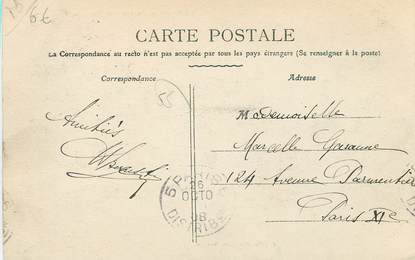 6€
CARTE POSTALE
La Correspondance au recto n'est pas acceptée par tous les pays étrangers (Se renseigner à la poste)
Correspondance
Adresse
Amitiés
Mademoiselle
Marcelle
124 Avenue Parmentier
Paris XIe
PARIS
26
OCTO
08
DISTRIB